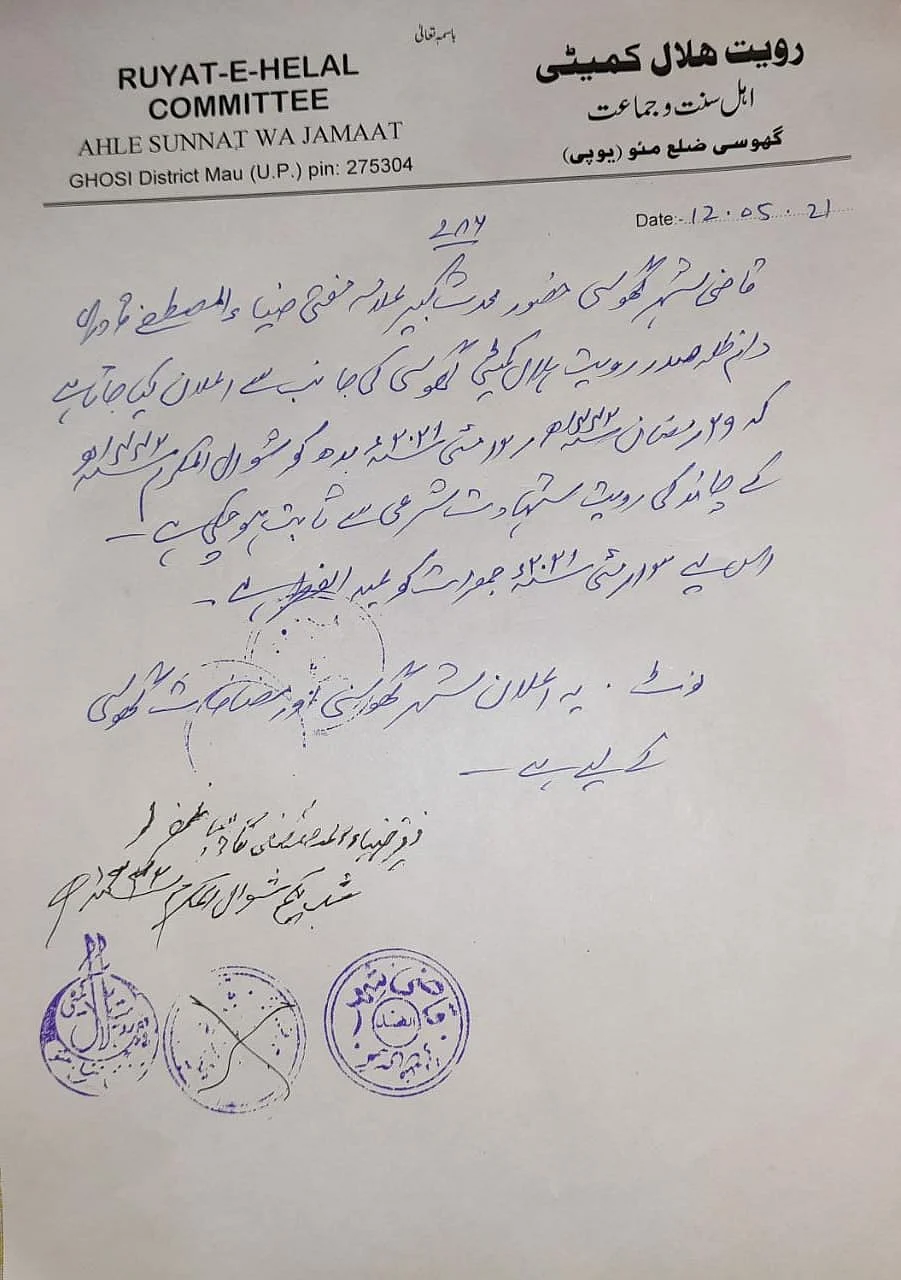 باسمہ تعالیٰ
RUYAT-E-HELAL
COMMITTEE
AHLE SUNNAT WA JAMAAT
GHOSI District Mau (U.P.) pin: 275304
رویت ھلال کمیٹی
اہل سنت و جماعت
گھوسی ضلع مئو (یوپی)
Date:- 12.05.21
۷۸۶
قاضی شہر گھوسی حضور محدث کبیر علامہ مفتی ضیاء المصطفےٰ قادری
دام ظلہ صدر رویت ہلال کمیٹی گھوسی کی جانب سے اعلان کیا جاتا ہے
کہ ۲۹ رمضان سنہ ۱۴۴۲ھ ۱۲ مئی سنہ ۲۰۲۱ء بدھ کو شوال المکرم سنہ ۱۴۴۲ھ
کے چاند کی رویت شہادت شرعی سے ثابت ہو چکی ہے ۔
اس لیے ۱۳ مئی سنہ ۲۰۲۱ء جمعرات کو عید الفطر ہے ۔
نوٹ ۔ یہ اعلان شہر گھوسی اور مضافات گھوسی
کے لیے ہے ۔
فقیر ضیاء المصطفیٰ قادری غفرلہ
شب یکم شوال المکرم سنہ ۱۴۴۲ھ
قاضی شہر